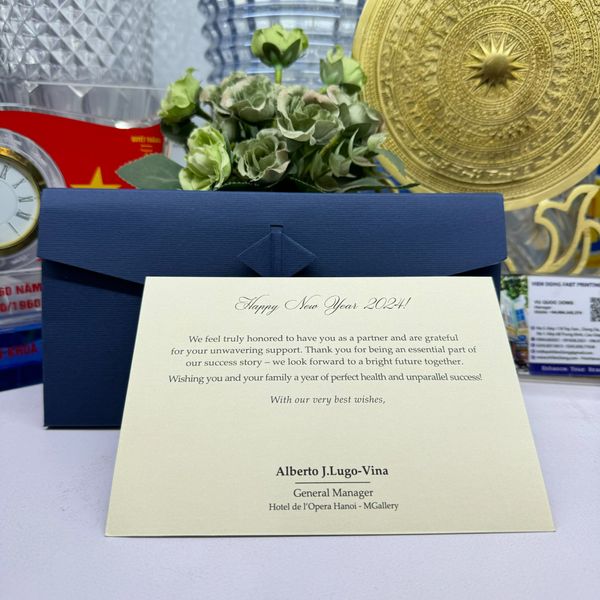 Happy New Year 2024!
We feel truly honored to have you as a partner and are grateful
for your unwavering support. Thank you for being an essential part of
our success story – we look forward to a bright future together.
Wishing you and your family a year of perfect health and unparallel success!
With our very best wishes,
Alberto J.Lugo-Vina
General Manager
Hotel de l'Opera Hanoi - MGallery
60 NĂM
VIEN DONG FAST PRINTING
VU QUOC DONG